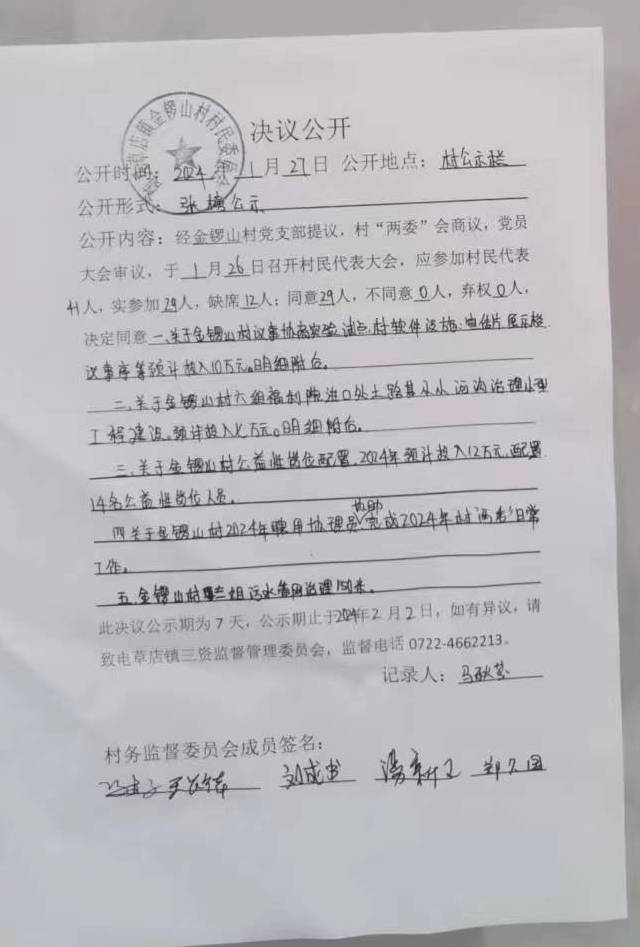 草店镇金锣山村村民委员会
决议公开
公开时间：2024年1月27日 公开地点：村公示栏
公开形式：张榜公示
公开内容：经金锣山村党支部提议，村“两委”会商议，党员
大会审议，于1月26日召开村民代表大会，应参加村民代表
41人，实参加29人，缺席12人；同意29人，不同意0人，弃权0人，
决定同意一.关于金锣山村议事协商实验试点村软件设施：宣传片展示栏
议事亭等预计投入10万元。明细附后。
二.关于金锣山村六组福利院进口处土路基及水河沟治理小型
工程建设，预计投入七万元。明细附后。
三.关于金锣山村公益性岗位配置，2024年预计投入12万元，配置
14名公益性岗位人员。
四关于金锣山村2024年聘用协理员协助完成2024年村两委日常
工作。
五.金锣山村 组污水管网治理
此决议公示期为7天，公示期止于2024年2月2日，如有异议，请
致电草店镇三资监督管理委员会，监督电话0722-4662213。
记录人：马秋莹
村务监督委员会成员签名：
刘成书